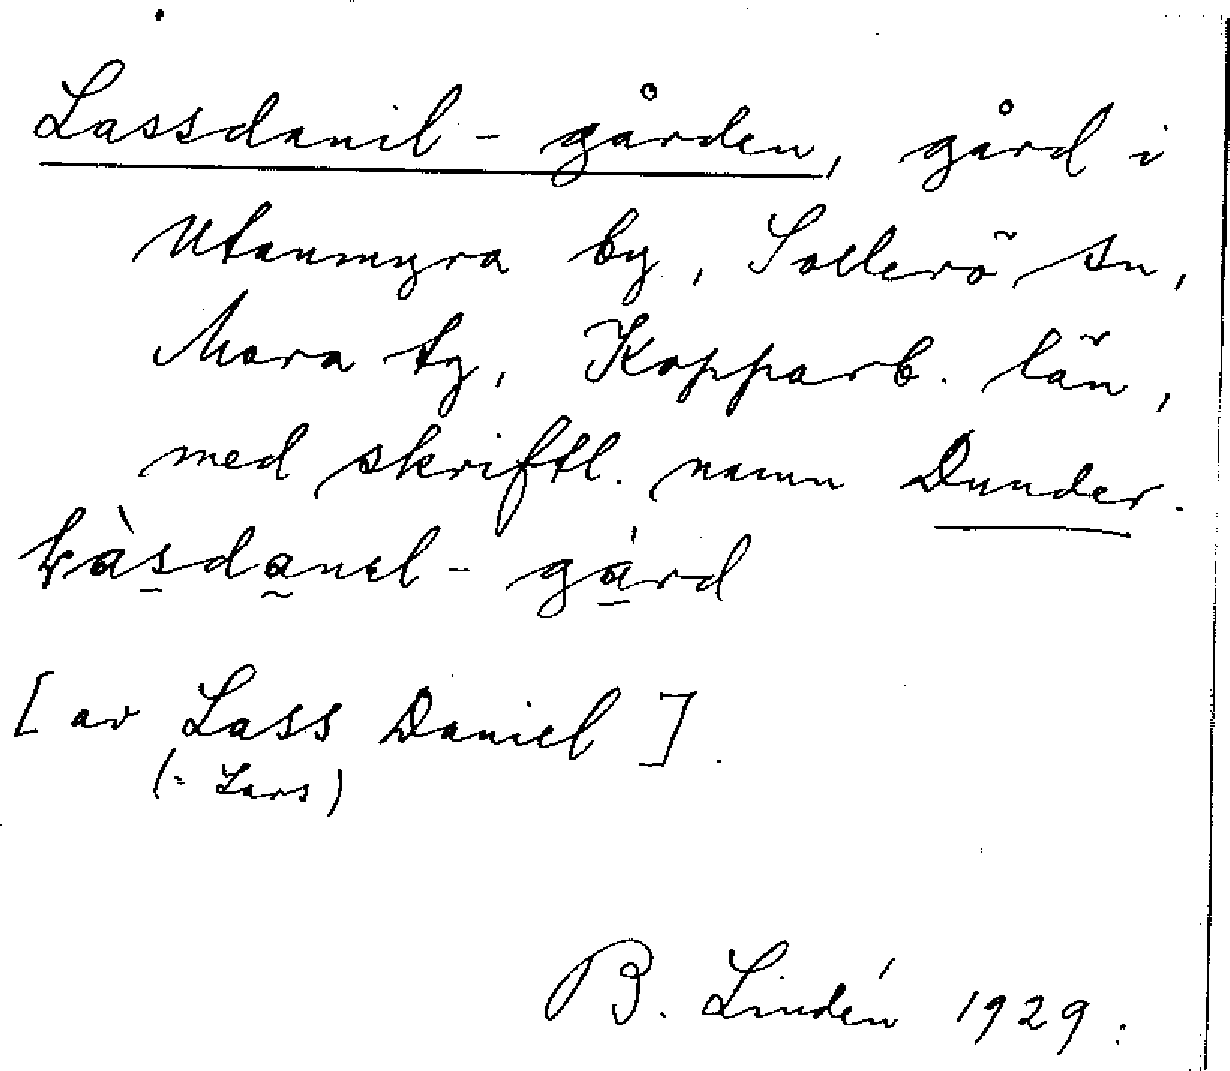 Lassdanil-gården, gård i
Utanmyra by, Sollerö sn,
Mora tg, Kopparb. län,
med skriftl. namn Dunder.
làsdanel-gård
[av Lass Daniel].
(= Lars)
B. Lindén 1929.